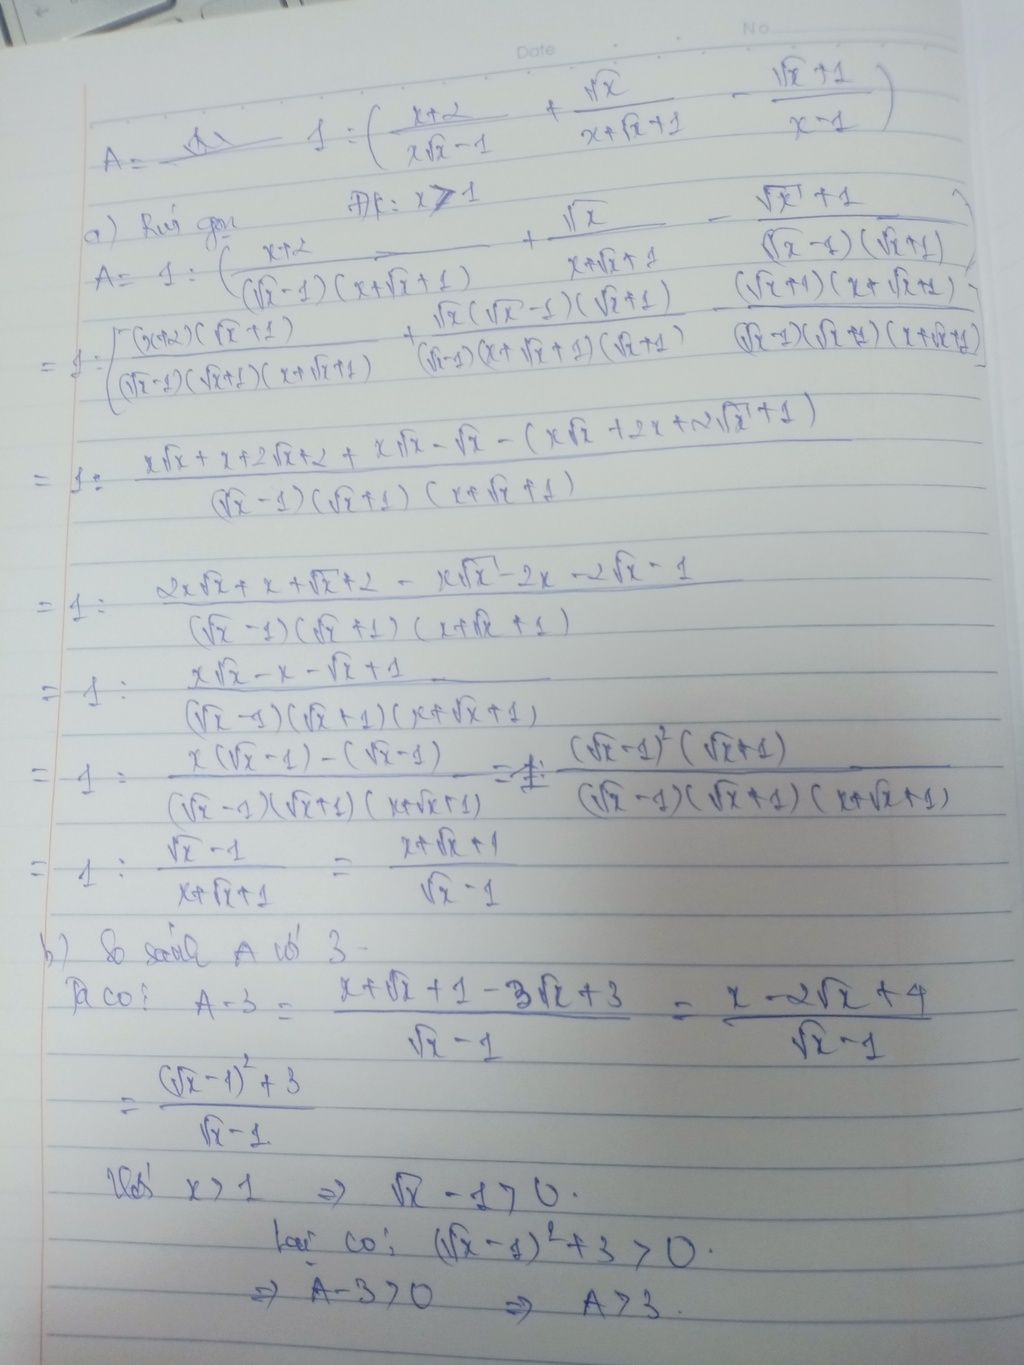 Date No
A = 1 : ( (x+2)/(x√x − 1) + √x/(x+√x+1) − (√x+1)/(x−1) )
a) Rút gọn ĐK: x > 1
A = 1 : ( (x+2)/((√x−1)(x+√x+1)) + √x/(x+√x+1) − (√x+1)/((√x−1)(√x+1)) )
= 1 : [ (x+2)(√x+1)/((√x−1)(√x+1)(x+√x+1)) + √x(√x−1)(√x+1)/((√x−1)(x+√x+1)(√x+1)) − (√x+1)(x+√x+1)/((√x−1)(√x+1)(x+√x+1)) ]
= 1 : (x√x + x + 2√x + 2 + x√x − √x − (x√x + 2x + 2√x + 1))/((√x−1)(√x+1)(x+√x+1))
= 1 : (2x√x + x + √x + 2 − x√x − 2x − 2√x − 1)/((√x−1)(√x+1)(x+√x+1))
= 1 : (x√x − x − √x + 1)/((√x−1)(√x+1)(x+√x+1))
= 1 : (x(√x−1) − (√x−1))/((√x−1)(√x+1)(x+√x+1)) = 1 : (√x−1)²(√x+1)/((√x−1)(√x+1)(x+√x+1))
= 1 : (√x−1)/(x+√x+1) = (x+√x+1)/(√x−1)
b) So sánh A với 3
Ta có: A − 3 = (x+√x+1−3√x+3)/(√x−1) = (x−2√x+4)/(√x−1)
= ((√x−1)²+3)/(√x−1)
Với x > 1 ⇒ √x − 1 > 0.
Lại có: (√x−1)² + 3 > 0.
⇒ A − 3 > 0 ⇒ A > 3.